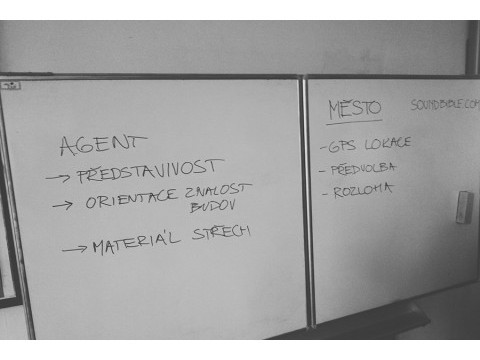 AGENT
→ PŘEDSTAVIVOST
→ ORIENTACE ZNALOST
BUDOV
→ MATERIÁL STŘECH
MĚSTO
SOUNDBIBLE.COM
- GPS LOKACE
- PŘEDVOLBA
- ROZLOHA